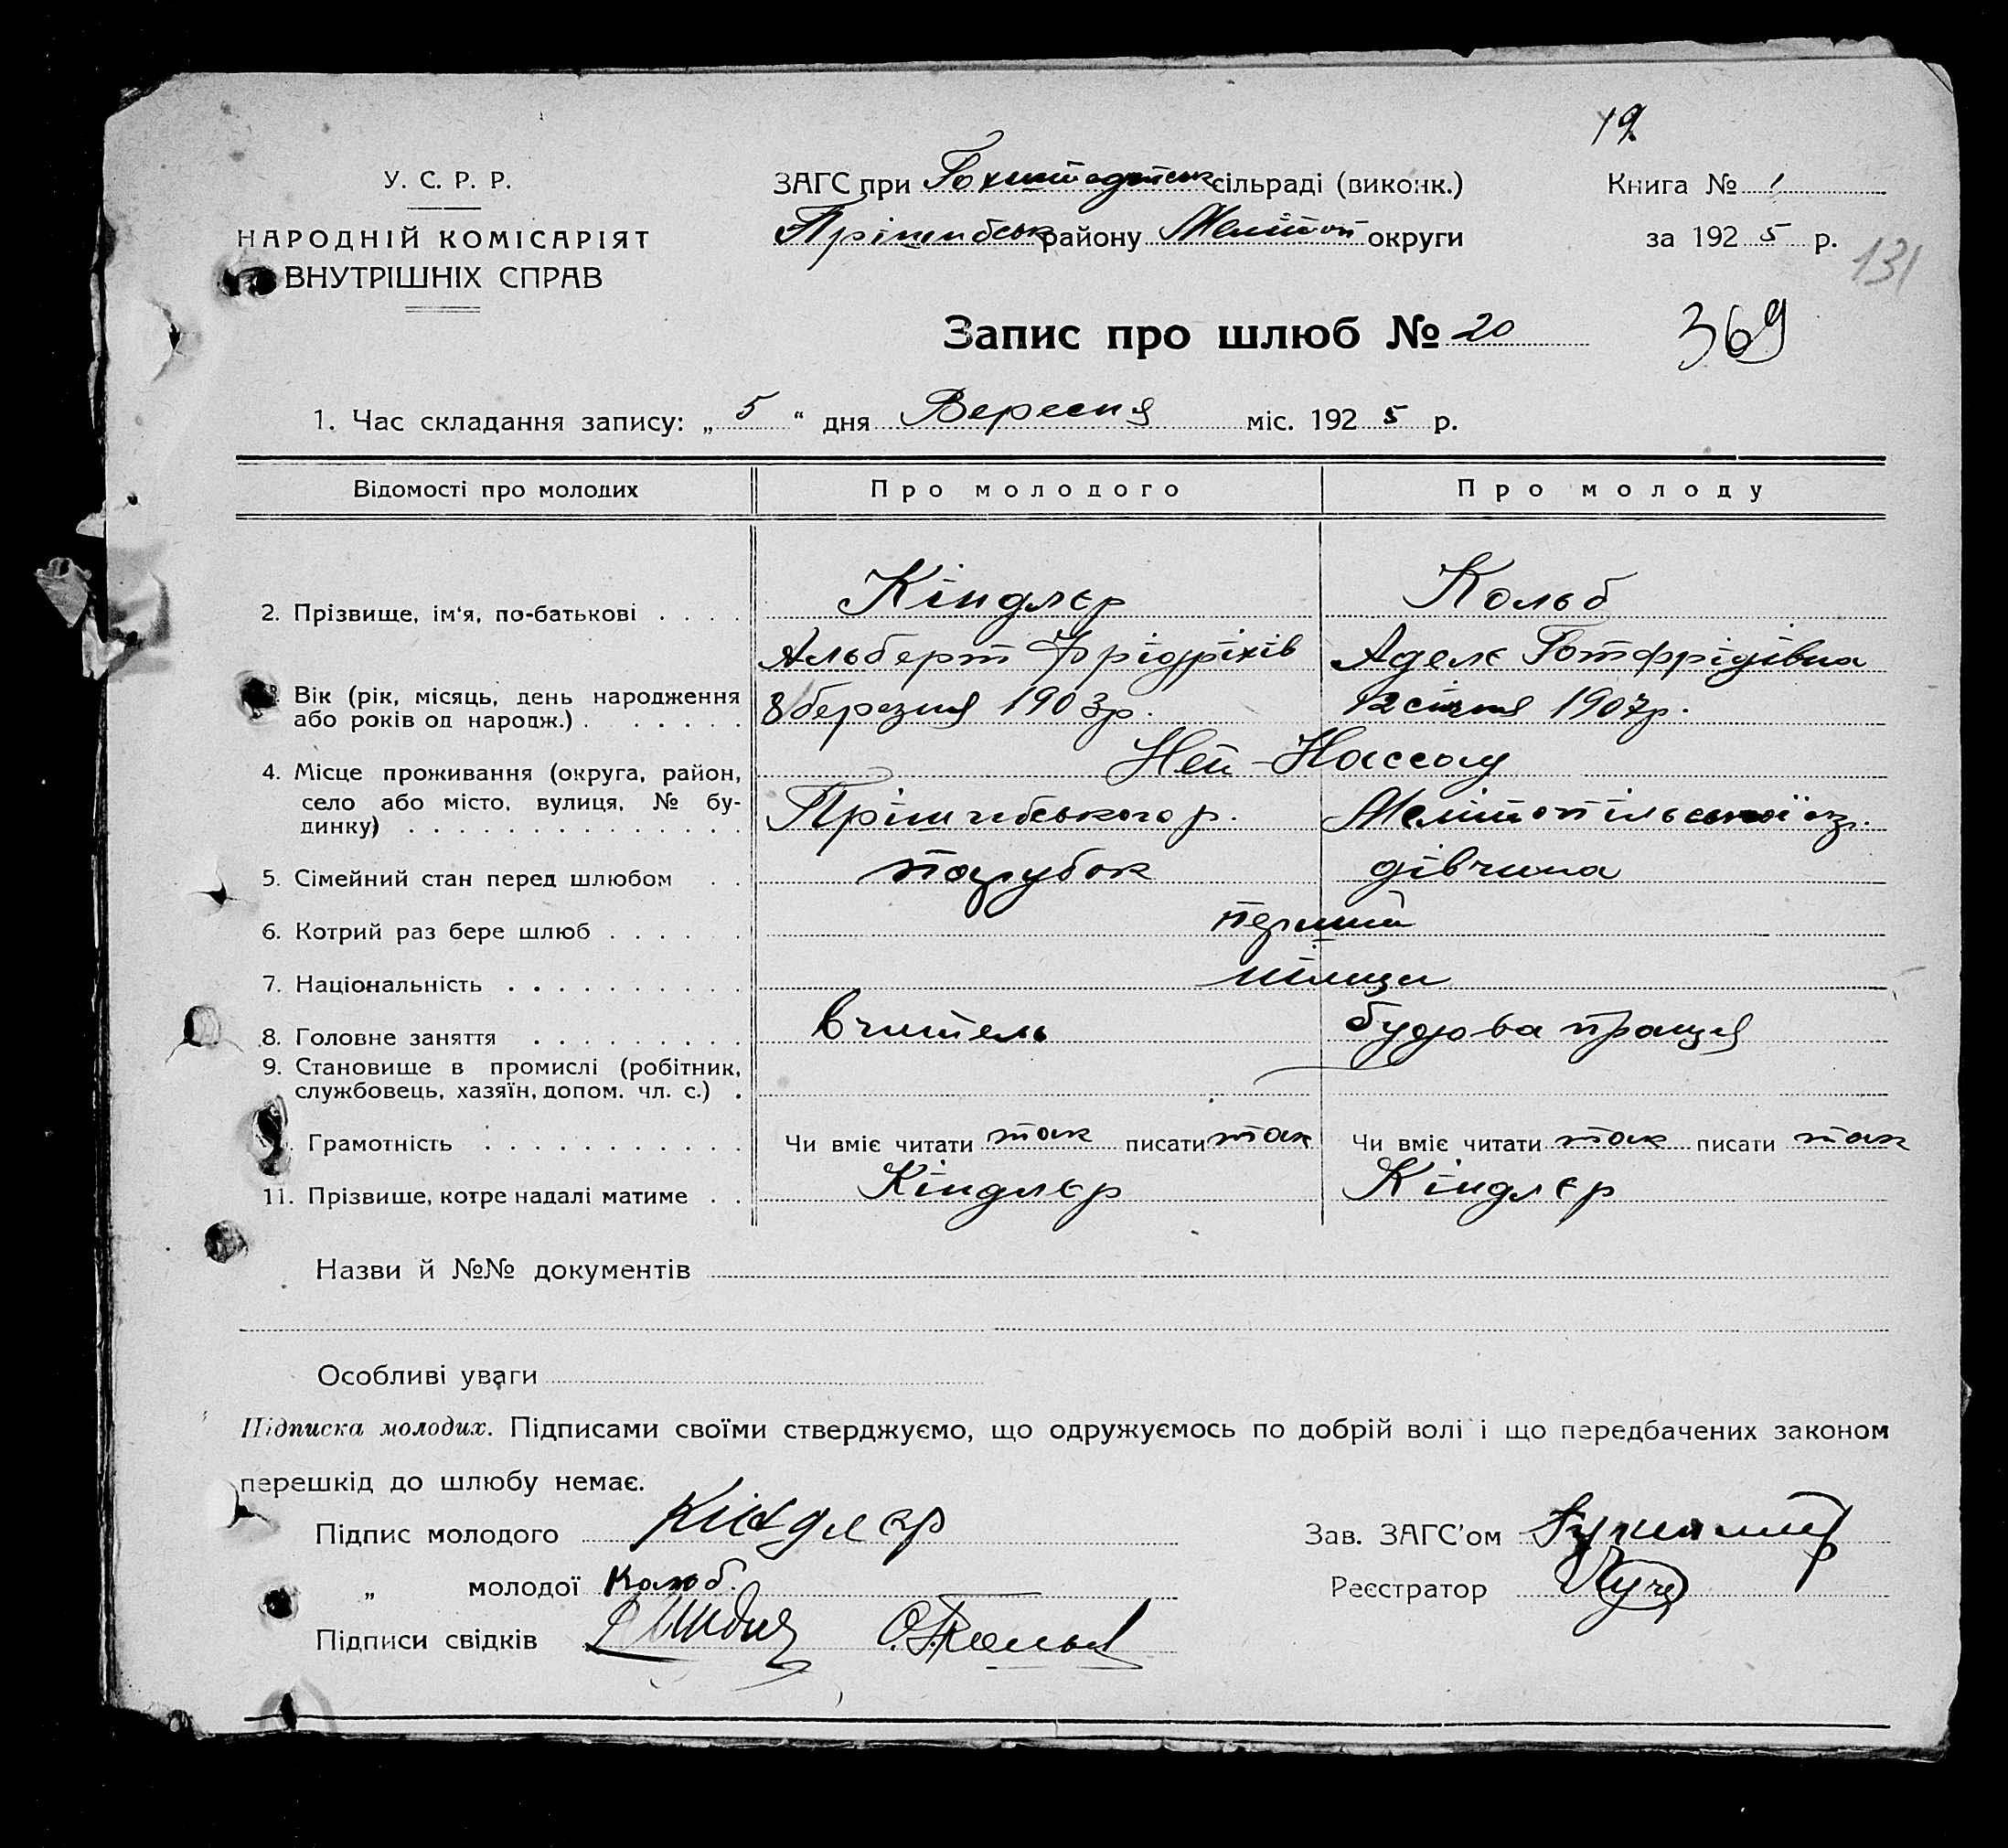 19
У. С. Р. Р.
НАРОДНІЙ КОМІСАРІЯТ
ВНУТРІШНІХ СПРАВ
ЗАГС при Гохштадтськ сільраді (виконк.)
Прішибськ району Меліт оп округи
Книга № 1
за 1925 р.
131
Запис про шлюб № 20
369
1. Час складання запису: „ 5 “ дня Вересня міс. 1925 р.
Відомості про молодих Про молодого Про молоду
2. Прізвище, ім'я, по-батькові . . . . Кіндлєр Кольб
Альберт Фрідріхів Аделє Готфрідівна
Вік (рік, місяць, день народження
або років од народж.) . . . . . . . 8 березня 1903р. 12 січня 1907р.
4. Місце проживання (округа, район, Ней-Нассау
село або місто, вулиця, № бу-
динку) . . . . . . . . . . . . . . Прішибського р. Мелітопільської ок.
5. Сімейний стан перед шлюбом . . парубок дівчина
6. Котрий раз бере шлюб . . . . . . перший
7. Національність . . . . . . . . . німци
8. Головне заняття . . . . . . . . . вчитель будова праця
9. Становище в промислі (робітник,
службовець, хазяїн, допом. чл. с.) .
Грамотність . . . . . . . . . . . Чи вміє читати так писати так Чи вміє читати так писати так
11. Прізвище, котре надалі матиме . . Кіндлєр Кіндлєр
Назви й №№ документів
Особливі уваги
Підписка молодих. Підписами своїми стверджуємо, що одружуємось по добрій волі і що передбачених законом
перешкід до шлюбу немає.
Підпис молодого Кіндлєр
Зав. ЗАГС'ом
„ молодої Кольб.
Реєстратор
Підписи свідків